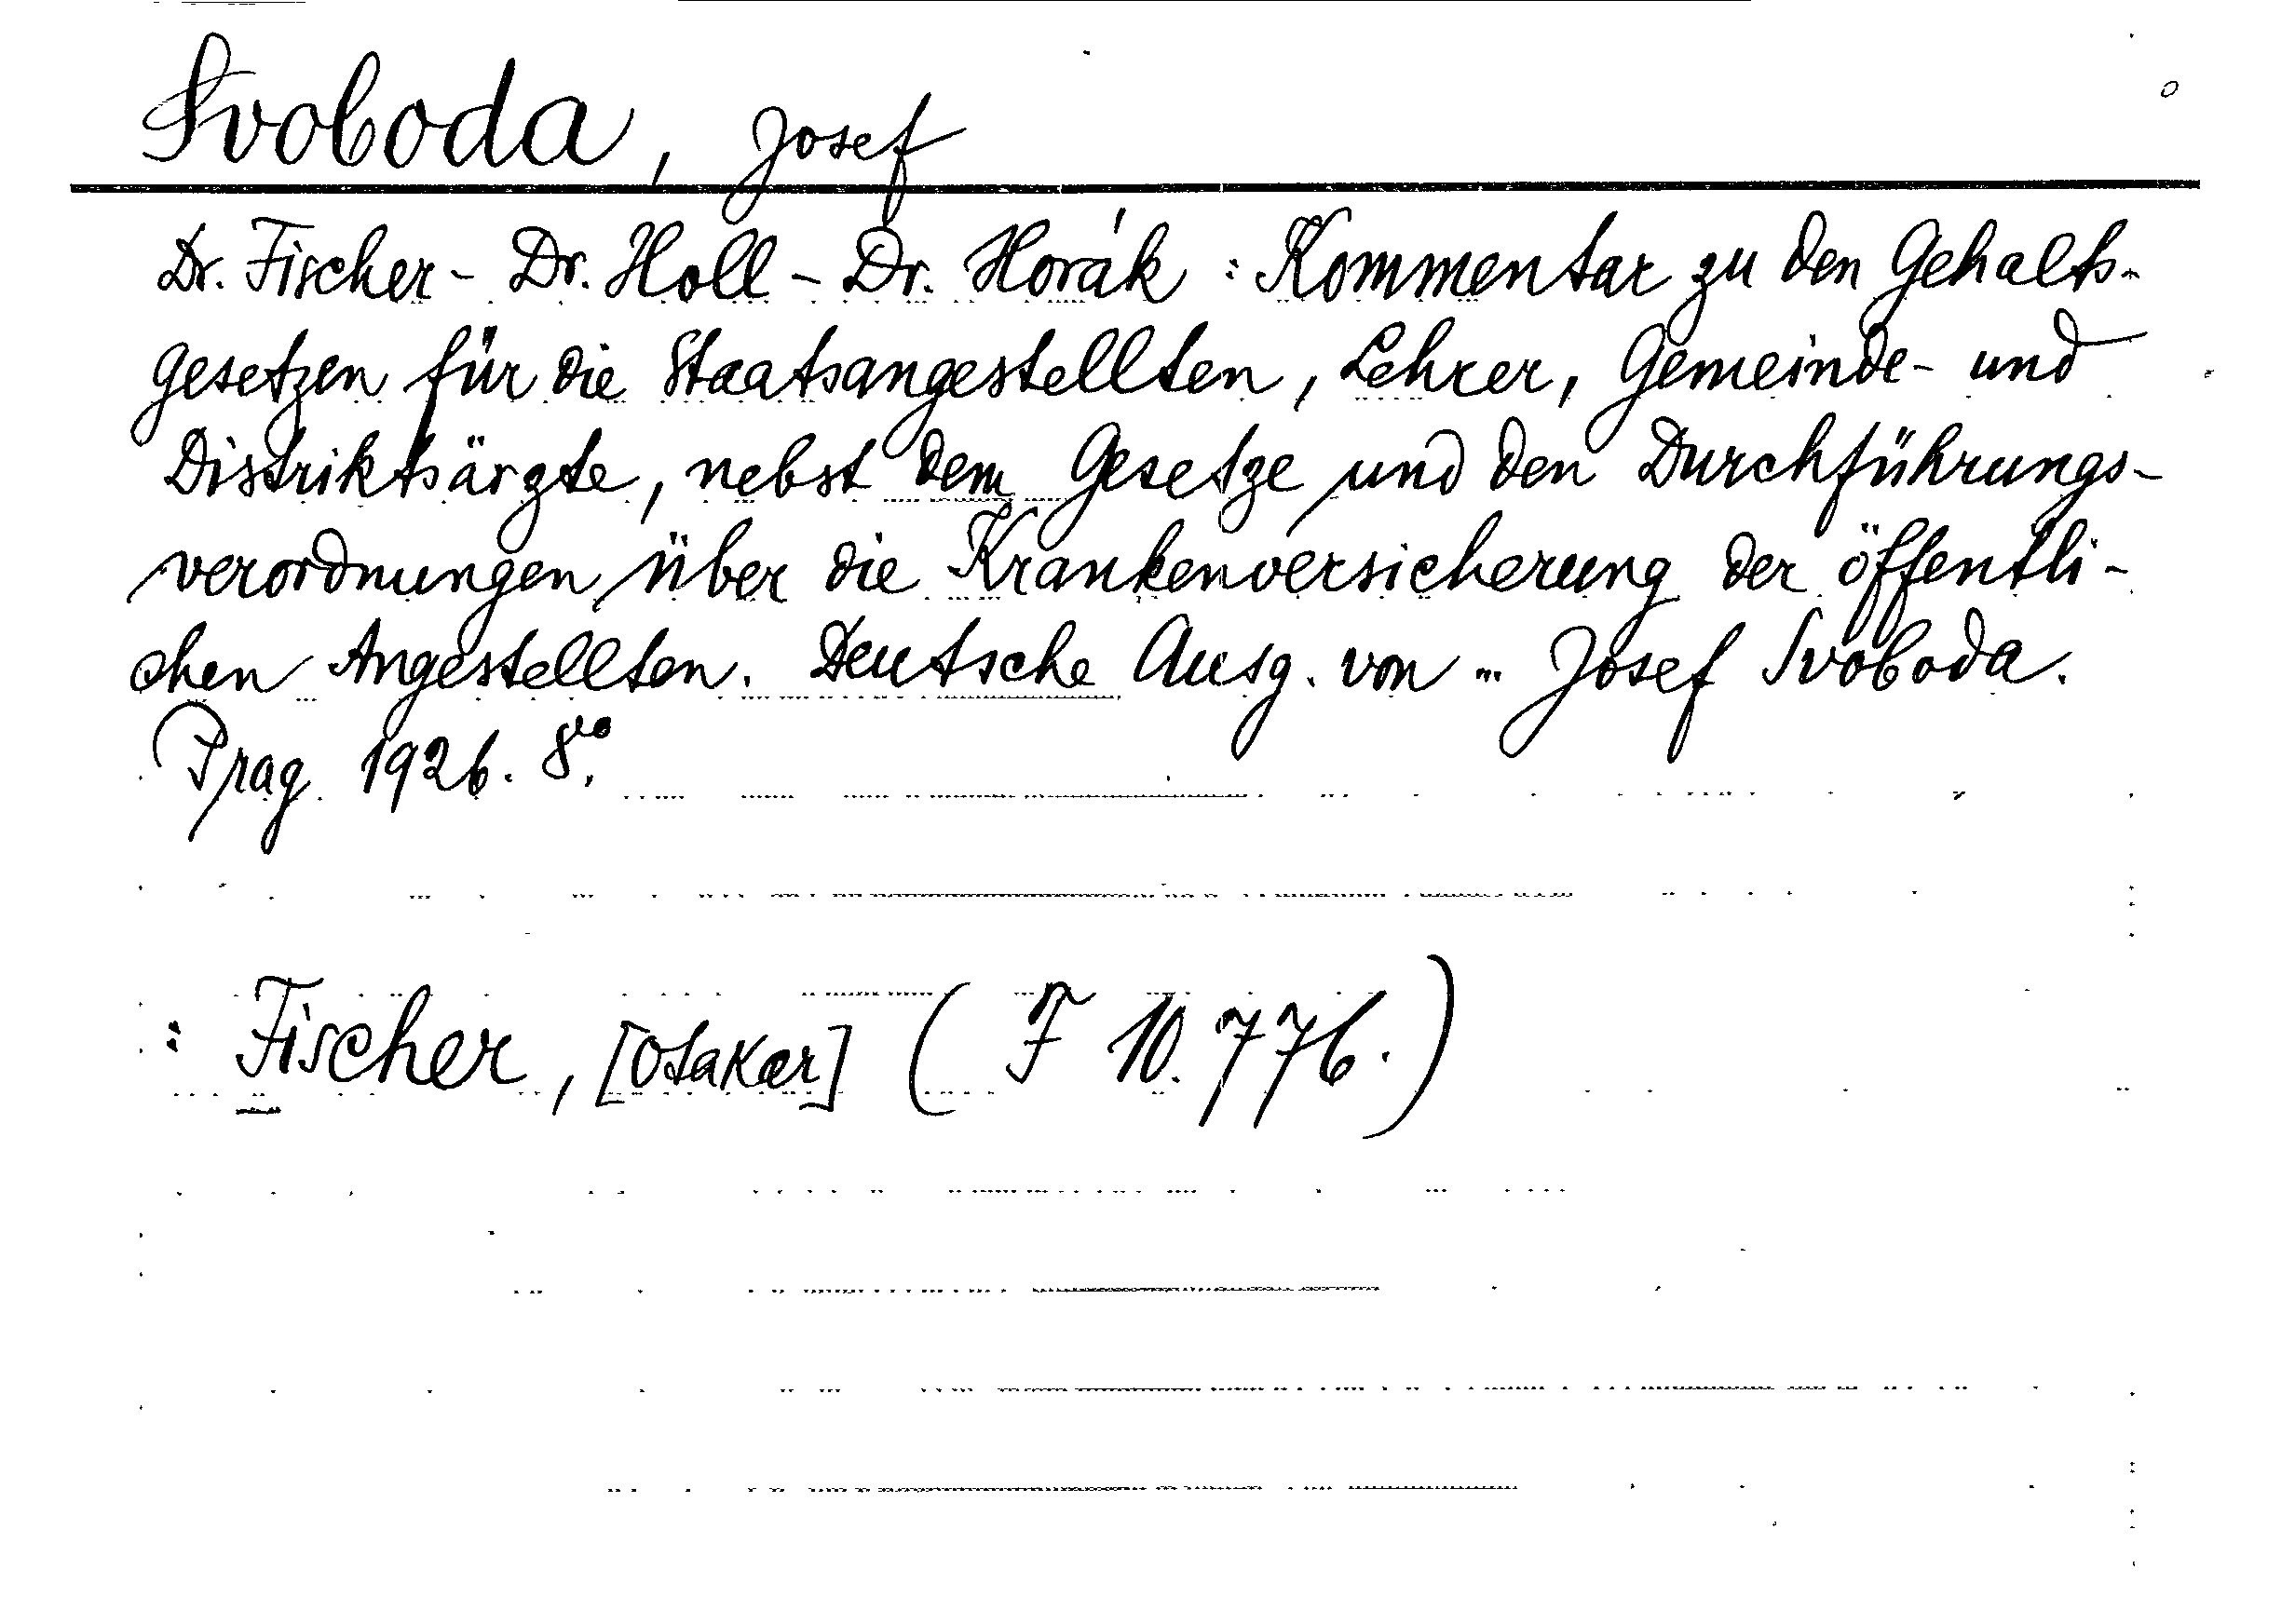 Svoboda, Josef
Dr. Fischer - Dr. Holl - Dr. Horák : Kommentar zu den Gehalts-
gesetzen für die Staatsangestellten, Lehrer, Gemeinde- und
Distriktsärzte, nebst dem Gesetze und den Durchführungs-
verordnungen über die Krankenversicherung der öffentli-
chen Angestellten. Deutsche Ausg. von ... Josef Svoboda.
Prag 1926. 8vo.
: Fischer, [Otakar] (F 10.776.)